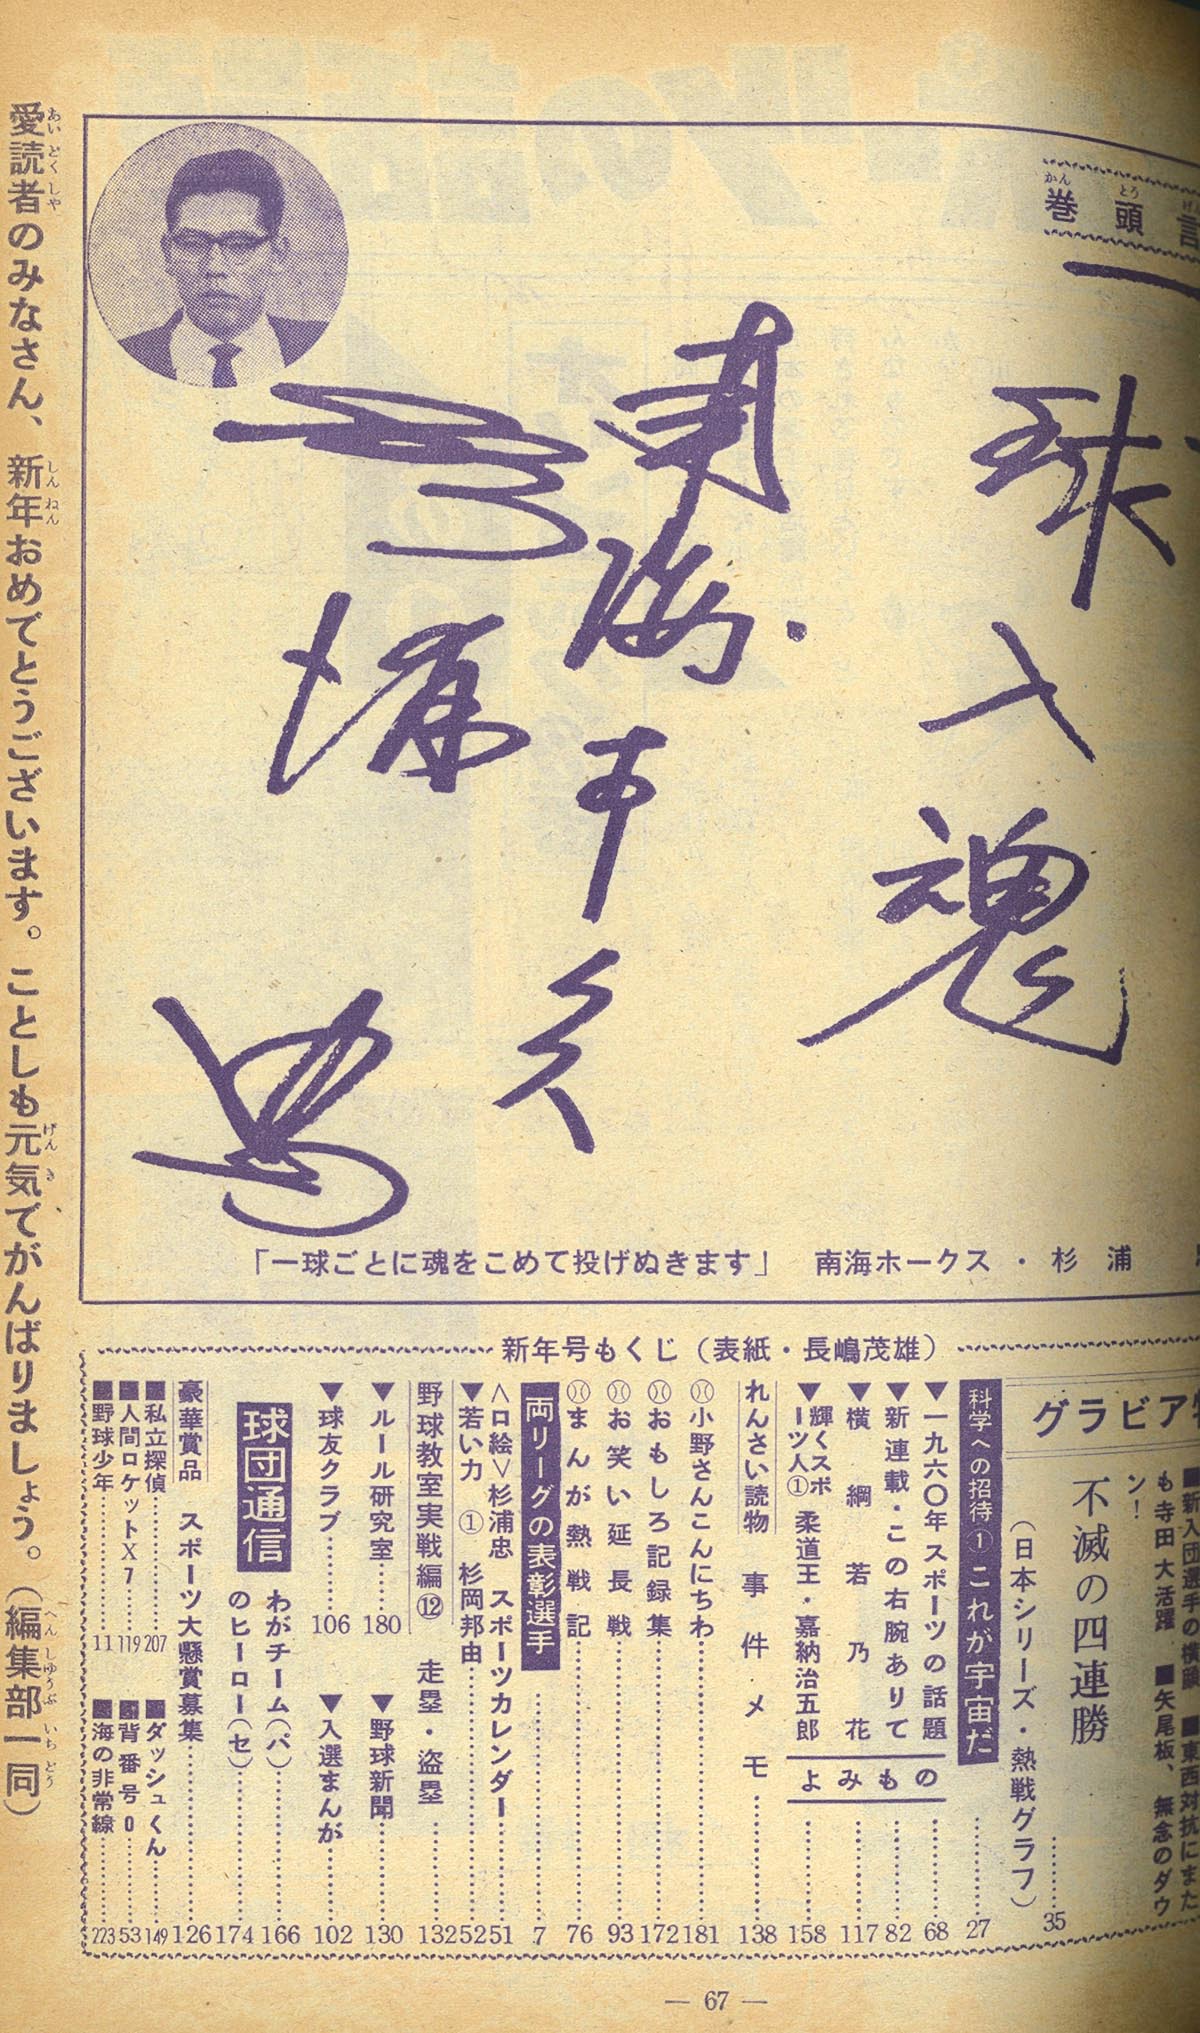 巻頭言
一
球
入
魂
南海ホークス
杉浦
忠
「一球ごとに魂をこめて投げぬきます」 南海ホークス・杉浦
愛読者のみなさん、新年おめでとうございます。ことしも元気でがんばりましょう。（編集部一同）
新年号もくじ（表紙・長嶋茂雄）
グラビア
■新入団選手の横顔 ■東西対抗にまた
も寺田大活躍 ■矢尾板、無念のダウ
ン！
不滅の四連勝
（日本シリーズ・熱戦グラフ）……35
科学への招待① これが宇宙だ……27
よみもの
▼一九六〇年スポーツの話題……68
▼新連載・この右腕ありて……82
▼横綱若乃花……117
▼輝くスポーツ人① 柔道王・嘉納治五郎……158
れんさい読物 事件メモ……138
小野さんこんにちわ……181
おもしろ記録集……172
お笑い延長戦……93
まんが熱戦記……76
両リーグの表彰選手……7
＜口絵＞杉浦忠 スポーツカレンダー……51
▼若い力① 杉岡邦由……52
野球教室実戦編⑫ 走塁・盗塁……132
▼ルール研究室……180
▼野球新聞……130
▼球友クラブ……106
▼入選まんが……102
球団通信 わがチーム（パ）……166
のヒーロー（セ）……174
豪華賞品 スポーツ大懸賞募集……126
■私立探偵……207
■ダッシュくん……149
■人間ロケットX7……119
■背番号0……53
■野球少年……11
■海の非常線……223
― 67 ―